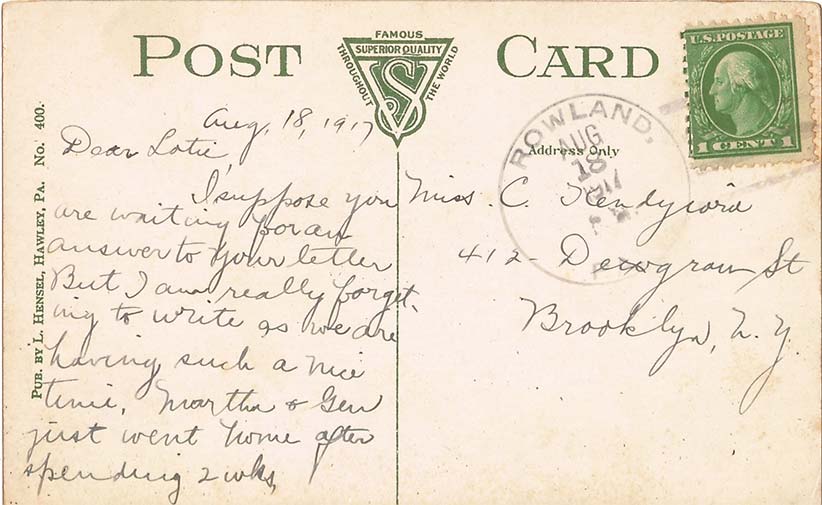 POST CARD
FAMOUS
SUPERIOR QUALITY
THROUGHOUT THE WORLD
VS
U.S. POSTAGE
1 CENT 1
ROWLAND,
AUG
18
1917
PA
Address Only
PUB. BY L. HENSEL, HAWLEY, PA. No. 400.
Aug, 18, 1917
Dear Lotie,
I suppose you
are waiting for an
answer to your letter
But I am really forget-
ing to write as we are
having such a nice
time, Martha & Gen
just went home after
spending 2 wks,
Miss. C.
412- St
Brooklyn, N.Y.